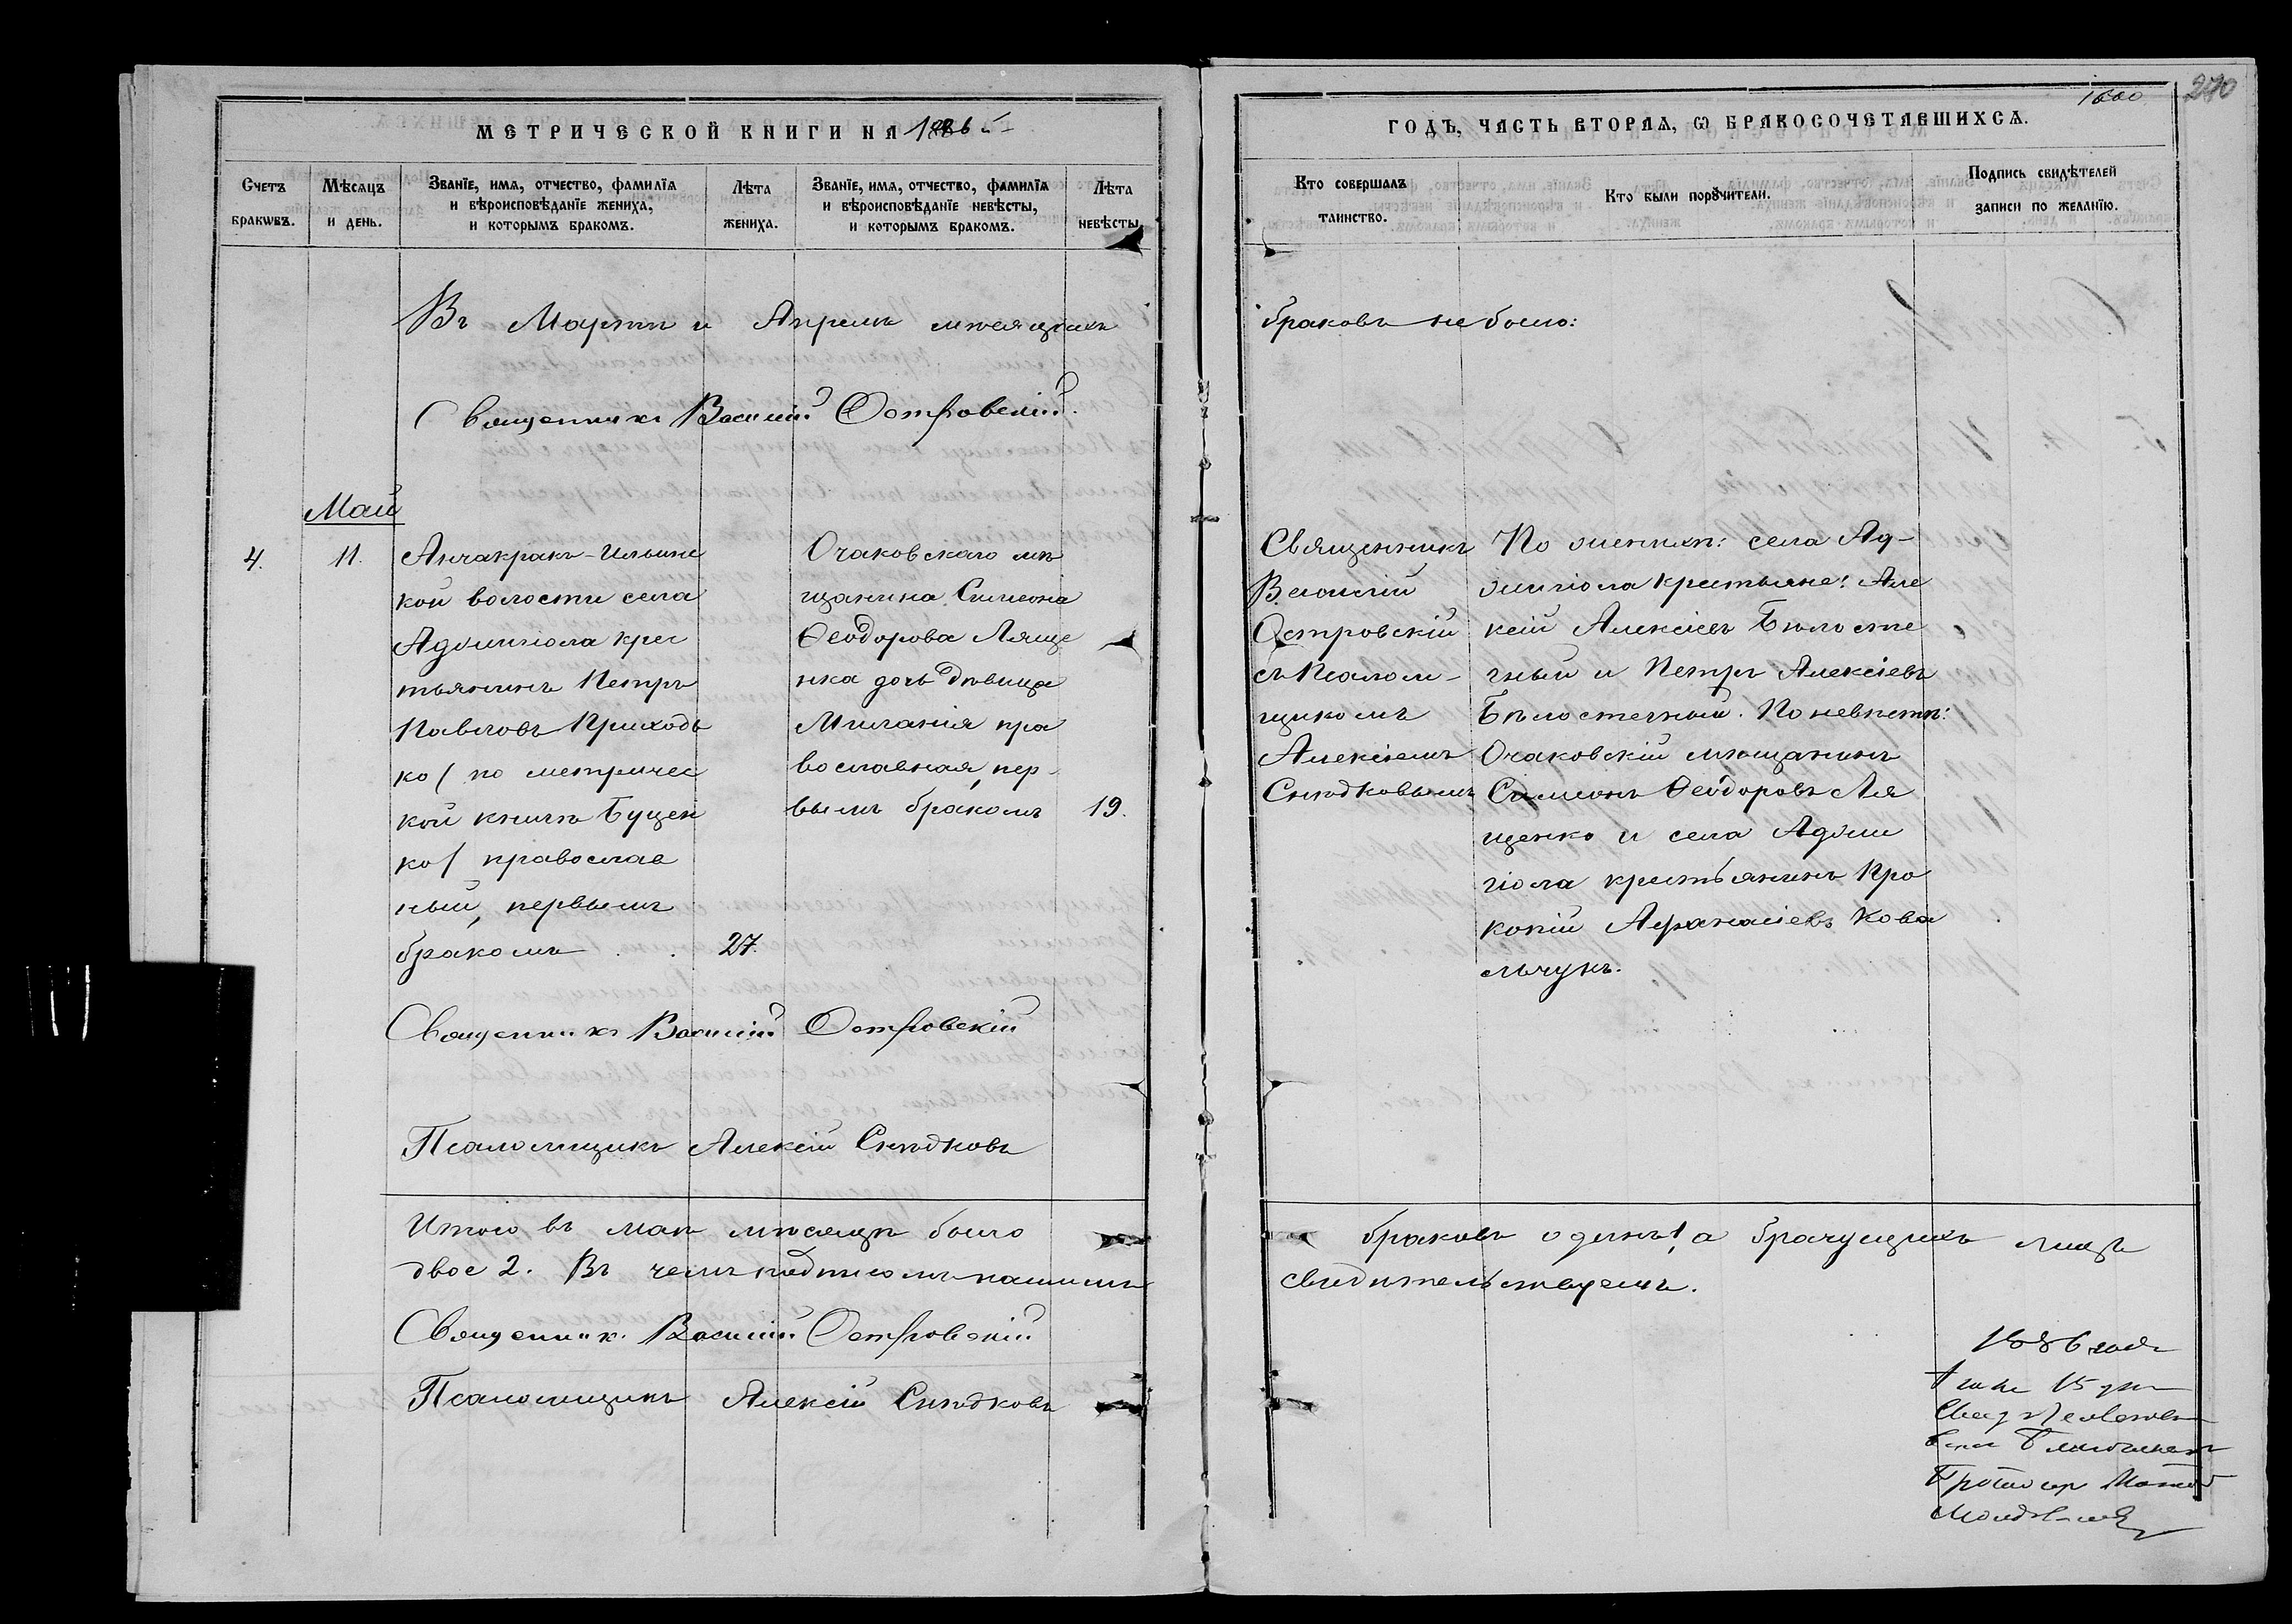 270
1660
МЕТРИЧЕСКОЙ КНИГИ НА 1886 й
ГОДЪ, ЧАСТЬ ВТОРАѦ, Ѡ БРАКОСОЧЕТАВШИХСѦ.
Счетъ браковъ.
Мѣсѧцъ и день.
Званїе, имѧ, отчество, фамилїѧ
и вѣроисповѣданїе жениха,
и которымъ бракомъ.
Лѣта жениха.
Званїе, имѧ, отчество, фамилїѧ
и вѣроисповѣданїе невѣсты,
и которымъ бракомъ.
Лѣта невѣсты.
Кто совершалъ
таинство.
Кто были порꙋчители.
Подпись свидѣтелей
записи по желанїю.
Въ Мартѣ и Апрѣлѣ мѣсяцахъ браковъ не было:
Священникъ Василій Островскій.
Май
4.
11.
Анчакракъ-Ильинс
кой волости села
Аджигiола крес
тьянинъ Петръ
Павловъ Приходь
ко / по метричес
кой книгѣ Буцен
ко / православ
ный, первымъ
бракомъ
27.
Очаковскаго мѣ
щанина Симеона
Ѳеодорова Ляще
нка дочь дѣвица
Миланія пра
вославная, пер-
вымъ бракомъ
19.
Священникъ
Василій
Островскій
съ Псалом-
щикомъ
Алексіемъ
Снѣдковымъ
По женихѣ: села Ад-
жигіола крестьяне: Але
ксій Алексіевъ Бѣлосте
чный и Петръ Алексіевъ
Бѣлостечный. По невѣстѣ:
Очаковскій мѣщанинъ
Симеонъ Ѳеодоровъ Ля
щенко и села Аджи
гіола крестьянинъ Про
копій Афанасіевъ Кова
льчукъ.
Священникъ Василій Островскій
Псаломщикъ Алексій Снѣдковъ
Итого въ маѣ мѣсяцѣ было браковъ одинъ 1, а брачущихъ лицъ
двое 2. Въ чемъ подписомъ нашимъ свидѣтельствуемъ.
Священникъ Василій Островскій
Псаломщикъ Алексій Снѣдковъ
1886 года
15 дня